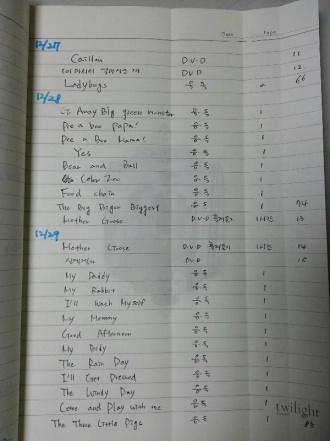 Date Page
12/27
Caillou D.V.D 11
DVD 12
Ladybugs 음독 2 66
12/28
Go Away Big green monster 음독 1
Pee a boo papa! 음독 1
Pee a Boo Mama! 음독 1
Yes 음독 1
Bear and Ball 음독 1
Color Zoo 음독 1
Food chain 음독 1
The Big Biger Biggest 음독 1 74
Mother Goose D.V.D 1시간 13
12/29
Mother Goose D.V.D 1시간 14
DVD 15
My Daddy 음독 1
My Rabbit 음독 1
I'll Wash Myself 음독 1
My Mommy 음독 1
Good Afternoon 음독 1
My Body 음독 1
The Rain Day 음독 1
I'll Get Dressed 음독 1
The Windy Day 음독 1
Come and Play with me 음독 1
twilight
The Three Little Pigs 음독 1 85